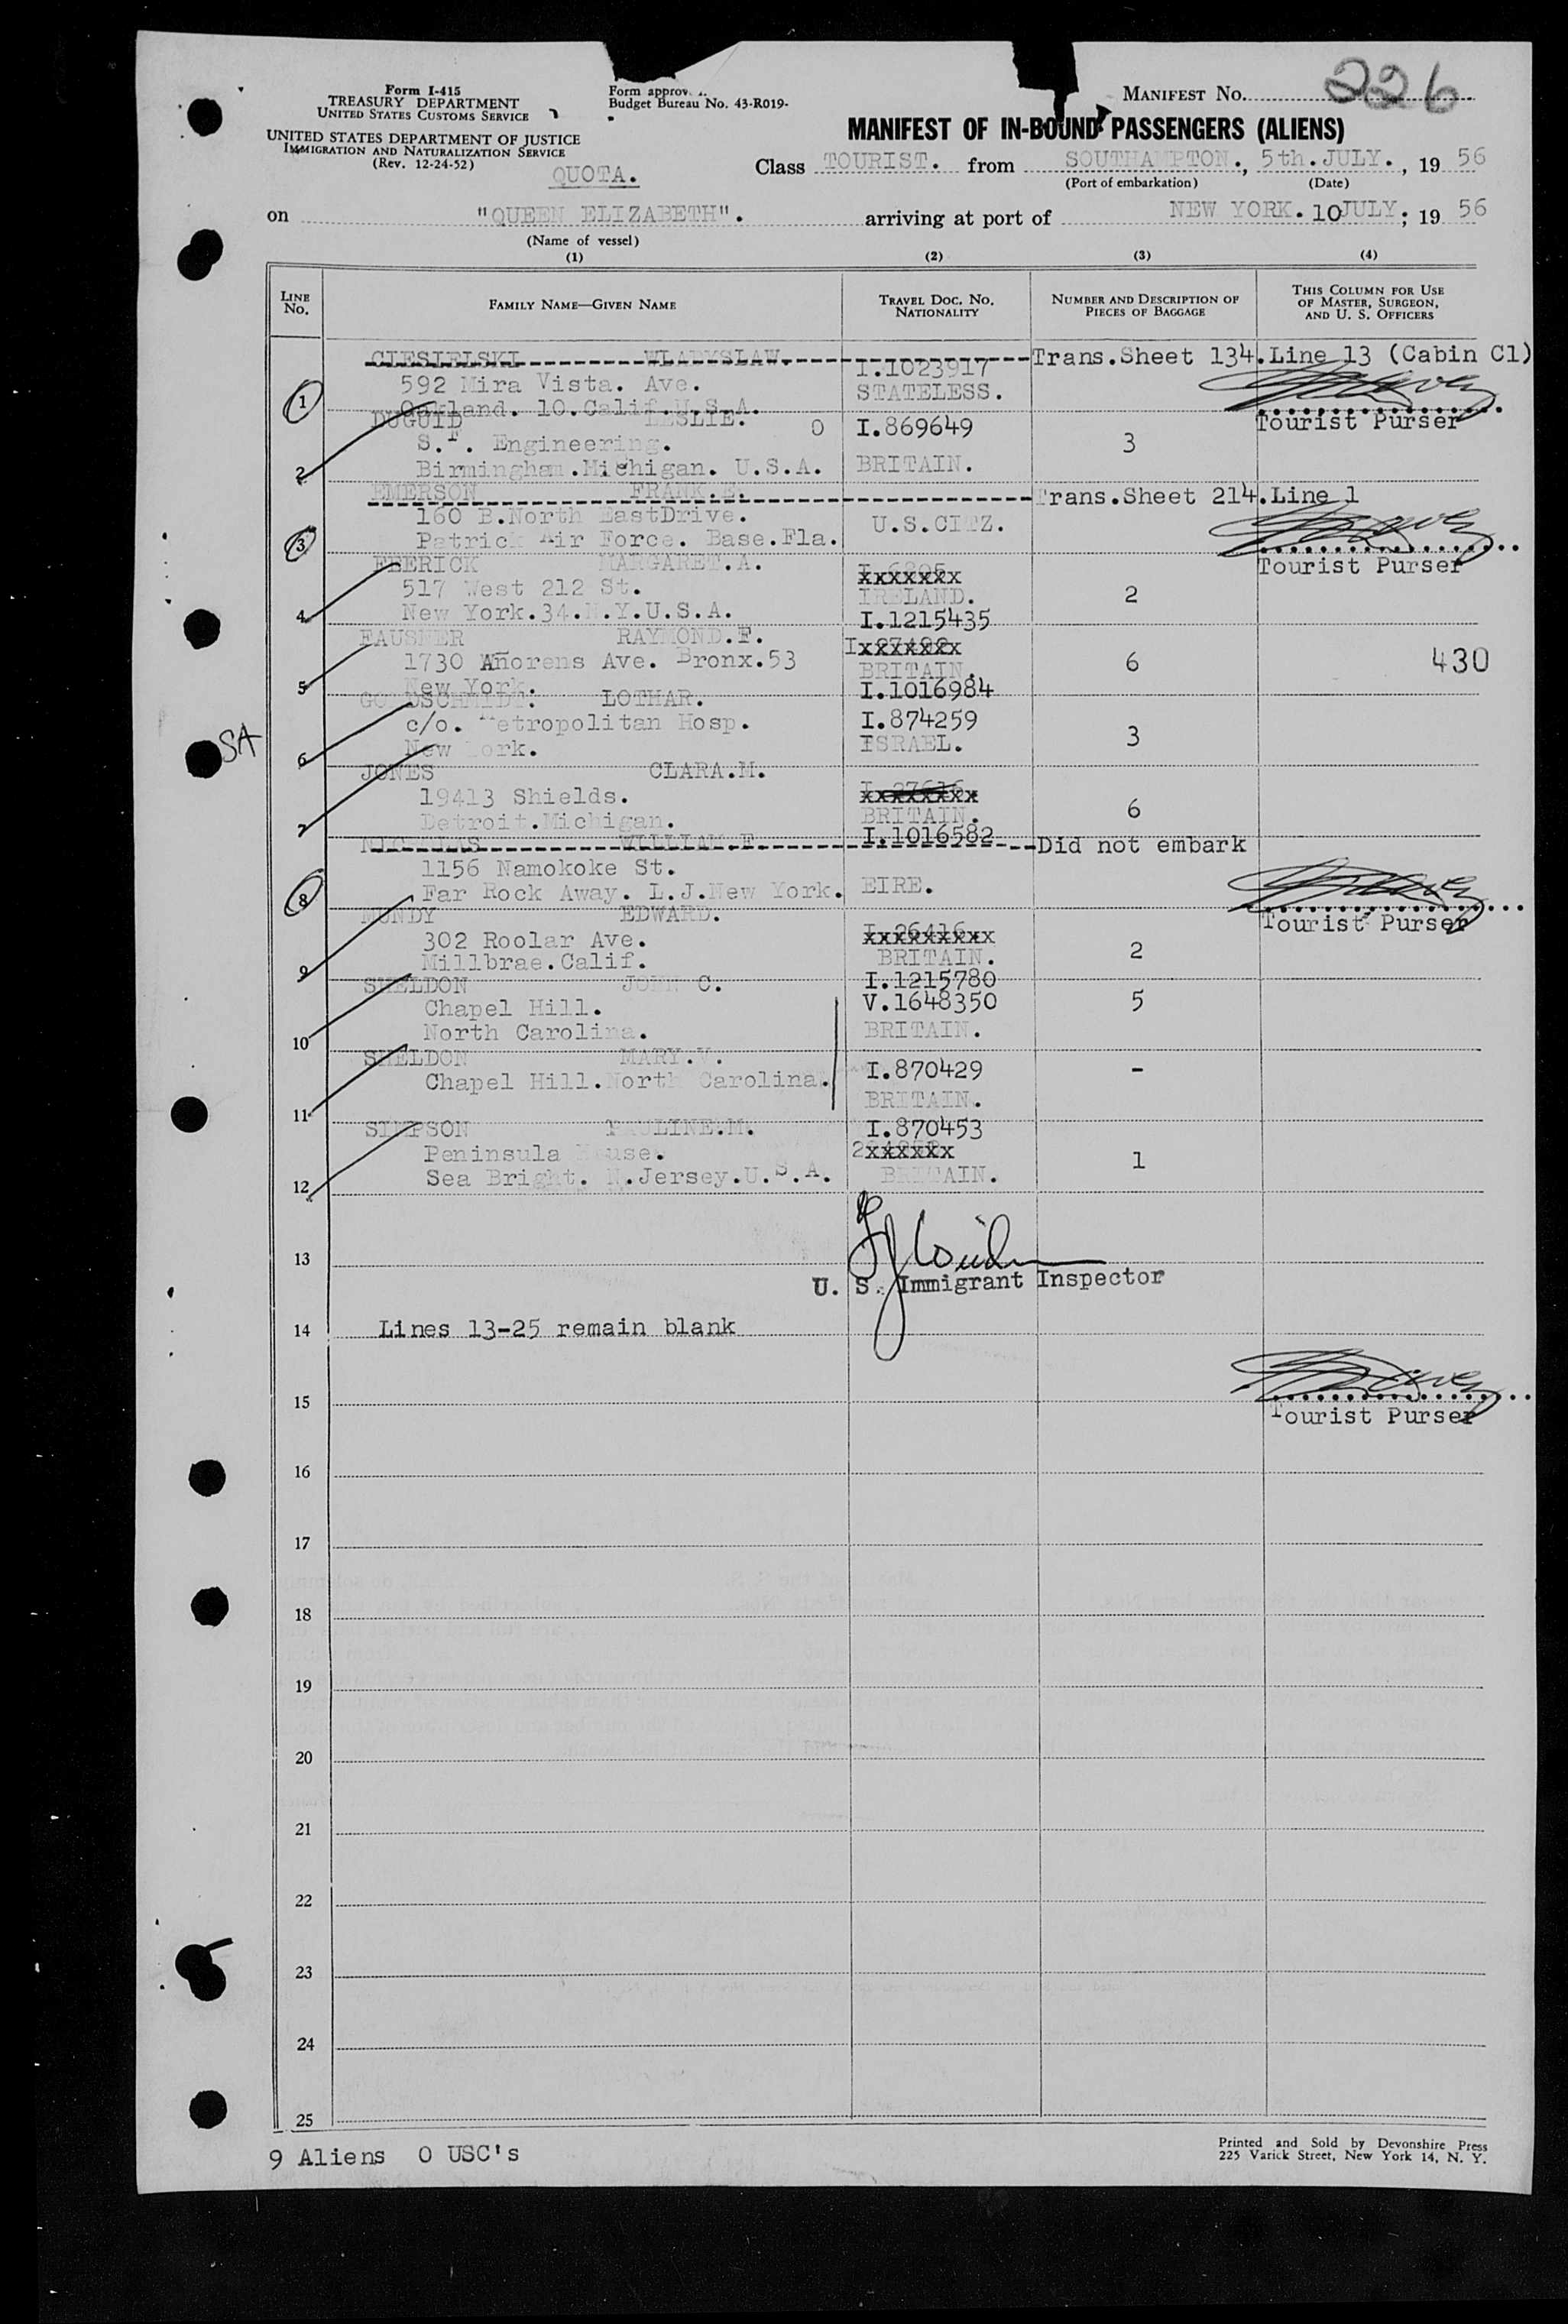 Form I-415
TREASURY DEPARTMENT
UNITED STATES CUSTOMS SERVICE
UNITED STATES DEPARTMENT OF JUSTICE
IMMIGRATION AND NATURALIZATION SERVICE
(Rev. 12-24-52)
QUOTA.
Form approv
Budget Bureau No. 43-R019-
MANIFEST NO. 226
MANIFEST OF IN-BOUND PASSENGERS (ALIENS)
Class TOURIST. from SOUTHAMPTON., 5th.JULY., 19 56
(Port of embarkation) (Date)
on "QUEEN ELIZABETH". arriving at port of NEW YORK. 10JULY; 19 56
(Name of vessel)
(1) (2) (3) (4)
LINE NO. FAMILY NAME—GIVEN NAME TRAVEL DOC. NO. NATIONALITY NUMBER AND DESCRIPTION OF PIECES OF BAGGAGE THIS COLUMN FOR USE OF MASTER, SURGEON, AND U. S. OFFICERS
CIESIELSKI WLADYSLAW. Trans.Sheet 134.Line 13 (Cabin Cl)
I.1023917
592 Mira Vista. Ave. STATELESS.
1 Oakland. 10.Calif.U.S.A.
Tourist Purser
DUGUID LESLIE. 0 I.869649
S.F. Engineering. 3
2 Birmingham.Michigan. U.S.A. BRITAIN.
EMERSON FRANK.E. Trans.Sheet 214.Line 1
160 B.North EastDrive. U.S.CITZ.
3 Patrick Air Force. Base.Fla.
Tourist Purser
EBERICK MARGARET.A. xxxxxxx
517 West 212 St. IRELAND. 2
4 New York.34.N.Y.U.S.A. I.1215435
FAUSHER RAYMOND.F. Ixxxxxxx
1730 Añorens Ave. Bronx.53 BRITAIN. 6 430
5 New York. I.1016984
GOLDSCHMIDT. LOTHAR.
c/o. Metropolitan Hosp. I.874259
SA
6 New York. ISRAEL. 3
JONES CLARA.M.
19413 Shields. xxxxxxxx
7 Detroit.Michigan. BRITAIN. 6
I.1016582
NICHOLAS WILLIAM.F. Did not embark
1156 Namokoke St.
8 Far Rock Away. L.J.New York. EIRE.
Tourist Purser
MUNDY EDWARD.
302 Roolar Ave. xxxxxxxxx
9 Millbrae.Calif. BRITAIN. 2
I.1215780
SHELDON JOHN C. V.1648350 5
Chapel Hill.
10 North Carolina. BRITAIN.
SHELDON MARY.V. I.870429 -
Chapel Hill.North Carolina.
11 BRITAIN.
SIMPSON PAULINE.M. I.870453
Peninsula House. xxxxxx 1
12 Sea Bright. N.Jersey.U.S.A. BRITAIN.
13
U. S. Immigrant Inspector
14 Lines 13-25 remain blank
15
Tourist Purser
16
17
18
19
20
21
22
23
24
25
9 Aliens 0 USC's
Printed and Sold by Devonshire Press
225 Varick Street, New York 14, N. Y.